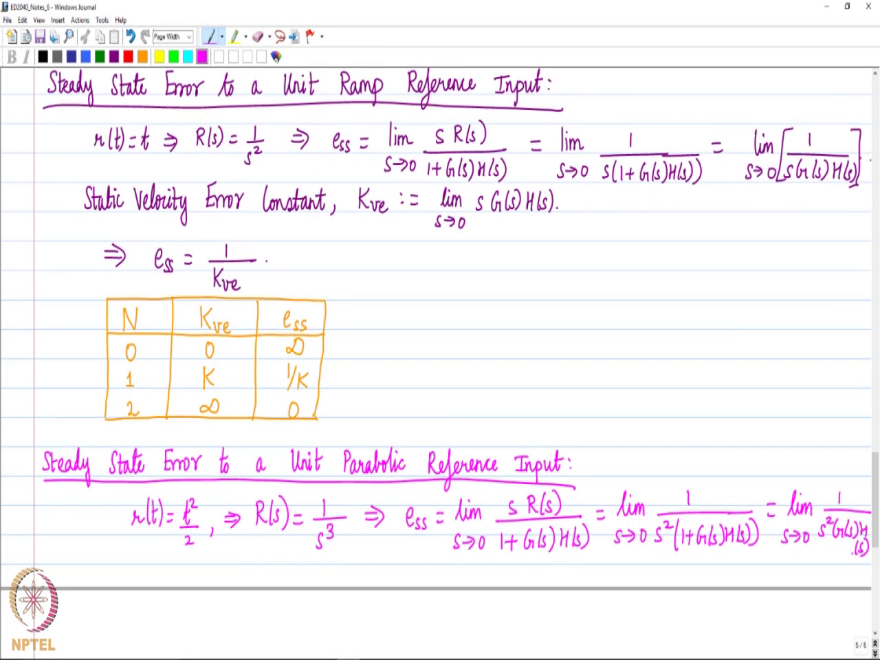 ED2040_Notes_6 - Windows Journal
File Edit View Insert Actions Tools Help
Page Width
B I
Steady State Error to a Unit Ramp Reference Input:
r(t)=t ⇒ R(s) = 1/s² ⇒ ess = lim s→0 s R(s)/(1+G(s)H(s)) = lim s→0 1/(s(1+G(s)H(s))) = lim s→0 [1/(sG(s)H(s))].
Static Velocity Error Constant, Kve := lim s→0 s G(s) H(s).
⇒ ess = 1/Kve.
N Kve ess
0 0 ∞
1 K 1/K
2 ∞ 0
Steady State Error to a Unit Parabolic Reference Input:
r(t) = t²/2, ⇒ R(s) = 1/s³ ⇒ ess = lim s→0 s R(s)/(1+G(s)H(s)) = lim s→0 1/(s²(1+G(s)H(s))) = lim s→0 1/(s²G(s)H(s))
NPTEL
5/6